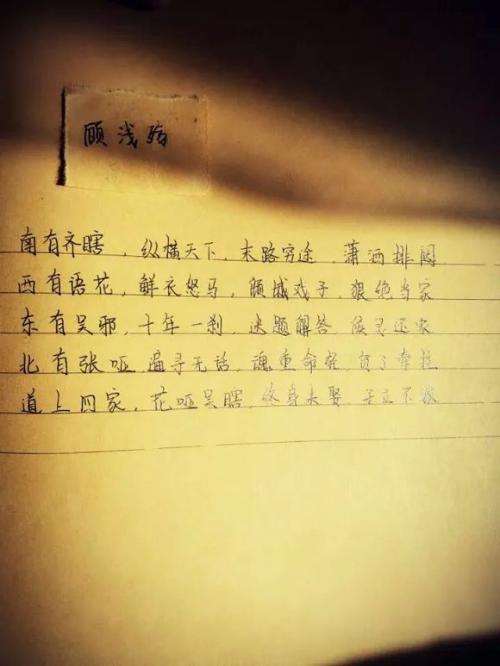 顾浅殇
南有齐瞎，纵横天下，末路穷途，潇洒排闼
西有语花，鲜衣怒马，倾城戏子，狠绝当家
东有吴邪，十年一刹，迷题解答，候灵还家
北有张哑，遍寻无话，魂重命轻，贫了牵挂
道上四家，花哑吴瞎，终身未娶，孑立不嫁